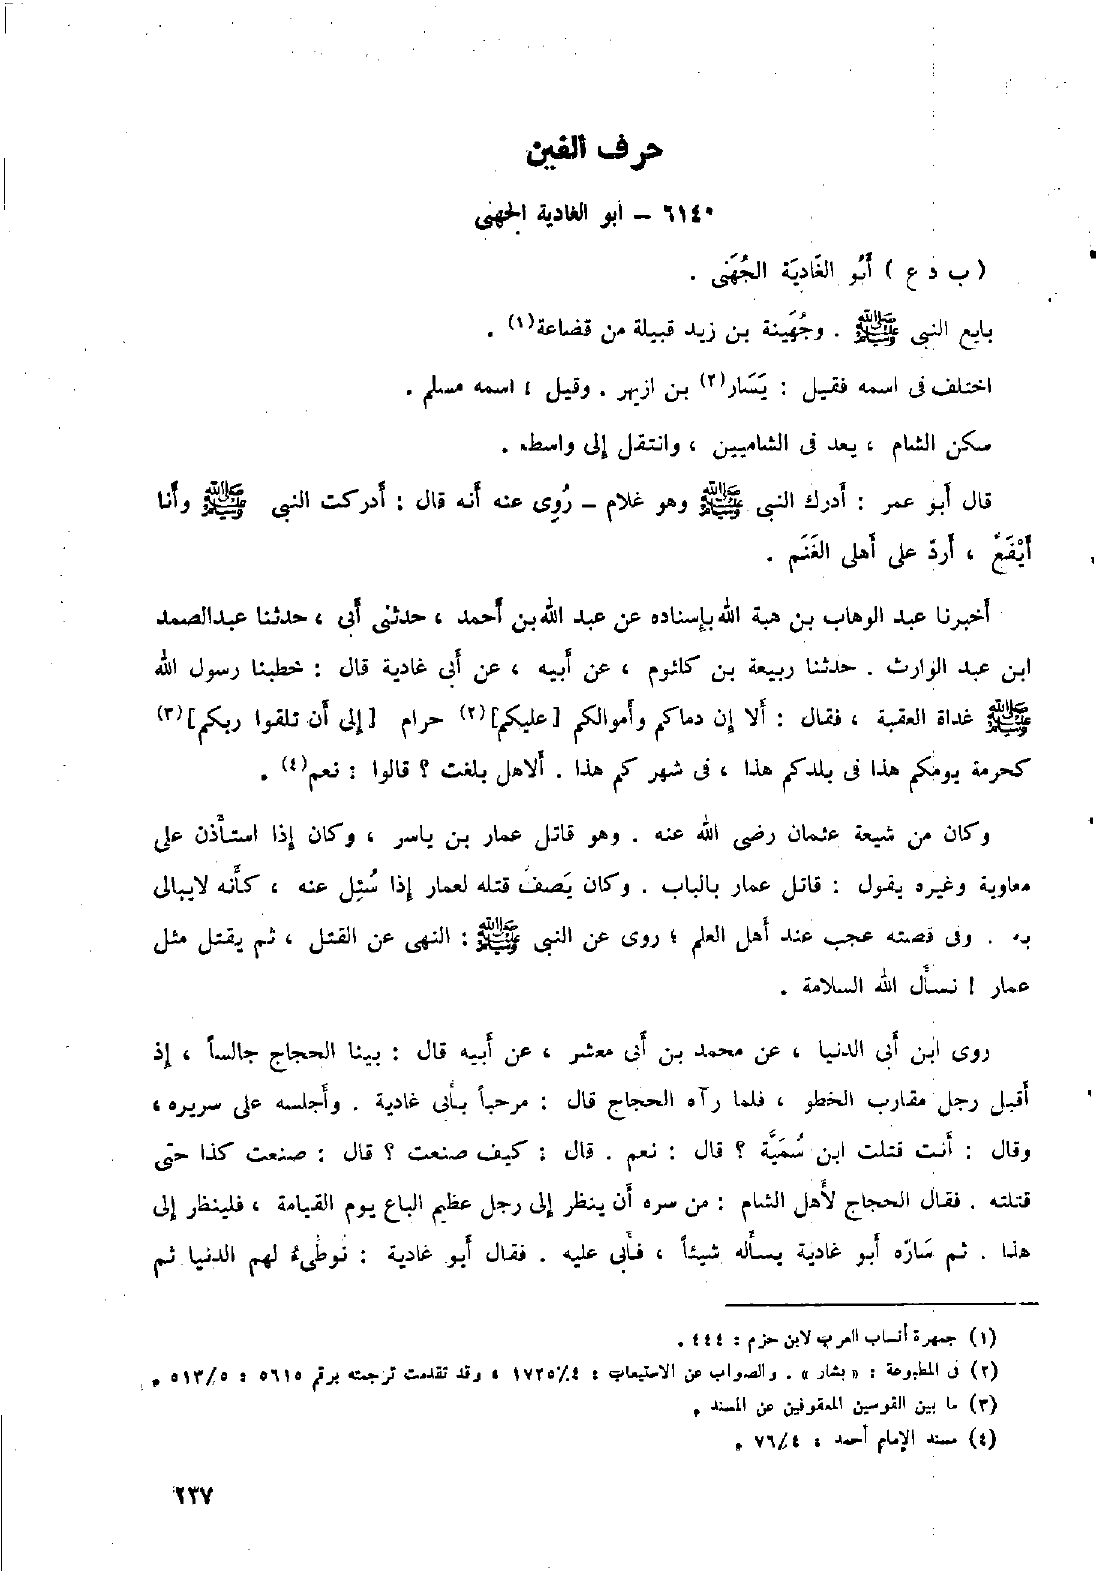 حرف الغين
٦١٤٠ – أبو الغادية الجهنى
( ب د ع ) أَبُو الغَادِيَة الجُهَنى .
بايع النبى ﷺ . وجُهَينة بن زيد قبيلة من قضاعة(١) .
اختلف فى اسمه فقيل : يَسَار(٢) بن ازيهر . وقيل : اسمه مسلم .
سكن الشام ، يعد فى الشاميين ، وانتقل إلى واسط .
قال أبو عمر : أدرك النبى ﷺ وهو غلام – رُوِى عنه أنه قال : أدركت النبى ﷺ وأنا
أَيْفَعُ ، أردّ على أهلى الغَنَم .
أخبرنا عبد الوهاب بن هبة الله بإسناده عن عبد الله بن أحمد ، حدثنى أبى ، حدثنا عبد الصمد
ابن عبد الوارث . حدثنا ربيعة بن كلثوم ، عن أبيه ، عن أبى غادية قال : خطبنا رسول الله
ﷺ غداة العقبة ، فقال : ألا إن دماكم وأموالكم [عليكم](٢) حرام [إلى أن تلقوا ربكم](٣)
كحرمة يومكم هذا فى بلدكم هذا ، فى شهر كم هذا . ألاهل بلغت ؟ قالوا : نعم(٤) .
وكان من شيعة عثمان رضى الله عنه . وهو قاتل عمار بن ياسر ، وكان إذا استأذن على
معاوية وغيره يقول : قاتل عمار بالباب . وكان يَصفُ قتله لعمار إذا سُئِل عنه ، كأنه لايبالى
به . وفى قصته عجب عند أهل العلم ؛ روى عن النبى ﷺ : النهى عن القتل ، ثم يقتل مثل
عمار ! نسأل الله السلامة .
روى ابن أبى الدنيا ، عن محمد بن أبى معشر ، عن أبيه قال : بينا الحجاج جالساً ، إذ
أقبل رجل مقارب الخطو ، فلما رآه الحجاج قال : مرحباً بأبى غادية . وأجلسه على سريره ،
وقال : أنت قتلت ابن سُمَيَّة ؟ قال : نعم . قال : كيف صنعت ؟ قال : صنعت كذا حتى
قتلته . فقال الحجاج لأهل الشام : من سره أن ينظر إلى رجل عظيم الباع يوم القيامة ، فلينظر إلى
هذا . ثم سَارّه أبو غادية يسأله شيئاً ، فأبى عليه . فقال أبو غادية : نُوطِّىءُ لهم الدنيا ثم
(١) جمهرة أنساب العرب لابن حزم : ٤٤٤ .
(٢) فى المطبوعة : « بشار » . والصواب عن الاستيعاب : ١٧٢٥/٤ ، وقد تقدمت ترجمته برقم ٥٦١٥ : ٥١٣/٥ .
(٣) ما بين القوسين المعقوفين عن المسند .
(٤) مسند الإمام أحمد : ٧٦/٤ .
٢٣٧